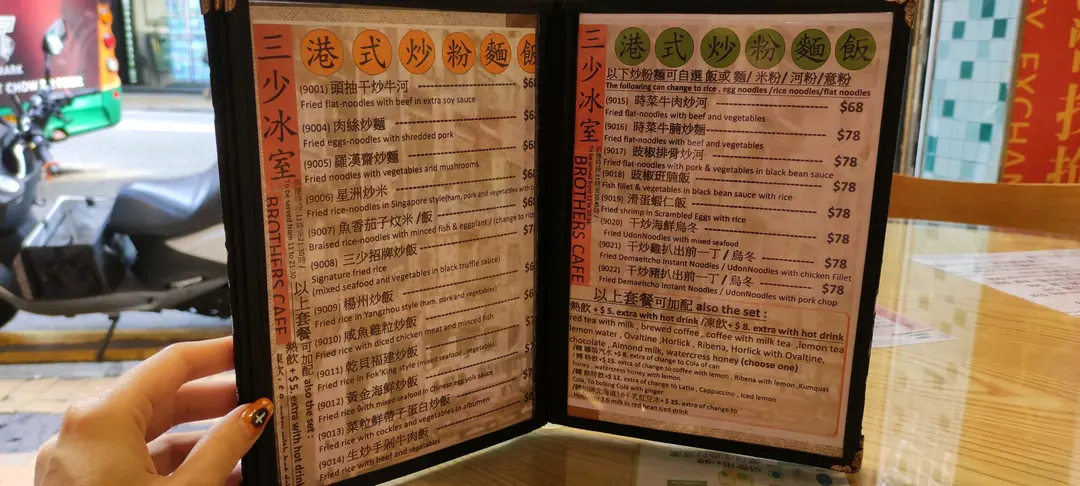 三少冰室
BROTHERS CAFE
To be served from 11 to 21:30
以上套餐可加配 also the set :
熱飲 + $ 5. extra with hot drink
港式炒粉麵飯
(9001) 頭抽干炒牛河
Fried flat-noodles with beef in extra soy sauce
(9004) 肉絲炒麵
Fried eggs-noodles with shredded pork
(9005) 羅漢齋炒麵
Fried noodles with vegetables and mushrooms
(9006) 星洲炒米
Fried rice-noodles in Singapore style(ham, pork and vegetables with
(9007) 魚香茄子炆米 /飯
Braised rice-noodles with minced fish & eggplant / (change to rice
(9008) 三少招牌炒飯
Signature fried rice
(mixed seafood and vegetables in black truffle sauce)
(9009) 楊州炒飯
Fried rice in Yangzhou style (ham, pork and vegetables)
(9010) 咸魚雞粒炒飯
Fried rice with diced chicken meat and minced fish
(9011) 乾貝福建炒飯
Fried rice in Fok'King style (mixed seafood , vegetables)
(9012) 黃金海鮮炒飯
Fried rice with mixed seafood in Chinese egg yolk sauce
(9013) 菜粒鮮帶子蛋白炒飯
Fried rice with cockles and vegetables in albumen
(9014) 生炒手剁牛肉飯
Fried rice with beef and vegetables
三少冰室
BROTHERS CAFE
港式炒粉麵飯
以下炒粉麵可自選 飯或 麵/ 米粉/ 河粉/意粉
The following can change to rice , egg noodles /rice noodles/flat noodles
(9015) 時菜牛肉炒河 $68
Fried flat-noodles with beef and vegetables
(9016) 時菜牛腩炒麵 $78
Fried flat-noodles with beef and vegetables
(9017) 豉椒排骨炒河 $78
Fried flat-noodles with pork & vegetables in black bean sauce
(9018) 豉椒班腩飯 $78
Fish fillet & vegetables in black bean sauce with rice
(9019) 滑蛋蝦仁飯 $78
Fried shrimp in Scrambled Eggs with rice
(9020) 干炒海鮮烏冬 $78
Fried UdonNoodles with mixed seafood
(9021) 干炒雞扒出前一丁 / 烏冬 $78
Fried Demaeitcho Instant Noodles / UdonNoodles with chicken Fillet
(9022) 干炒豬扒出前一丁 / 烏冬 $78
Fried Demaeitcho Instant Noodles / UdonNoodles with pork chop
以上套餐可加配 also the set :
熱飲 + $ 5. extra with hot drink /凍飲+ $ 8. extra with hot drink
red tea with milk , brewed coffee , coffee with milk tea , lemon tea
lemon water , Ovaltine ,Horlick , Ribena, Horlick with Ovaltine,
chocolate , Almond milk, watercress honey (choose one)
/轉 罐裝汽水 +$ 8. extra of change to Cola of can
/轉 特飲+$ 15. extra of change to coffee with lemon , Ribena with lemon ,Kumquat
honey , watercress honey with lemon
/轉 熱時飲+$ 12. extra of change to Latte , Cappuccino , Iced lemon
Cola, To boiling Cola with ginger
3.6牛乳紅豆冰+ $ 25. extra of change to
3.6 milk in red bean iced drink